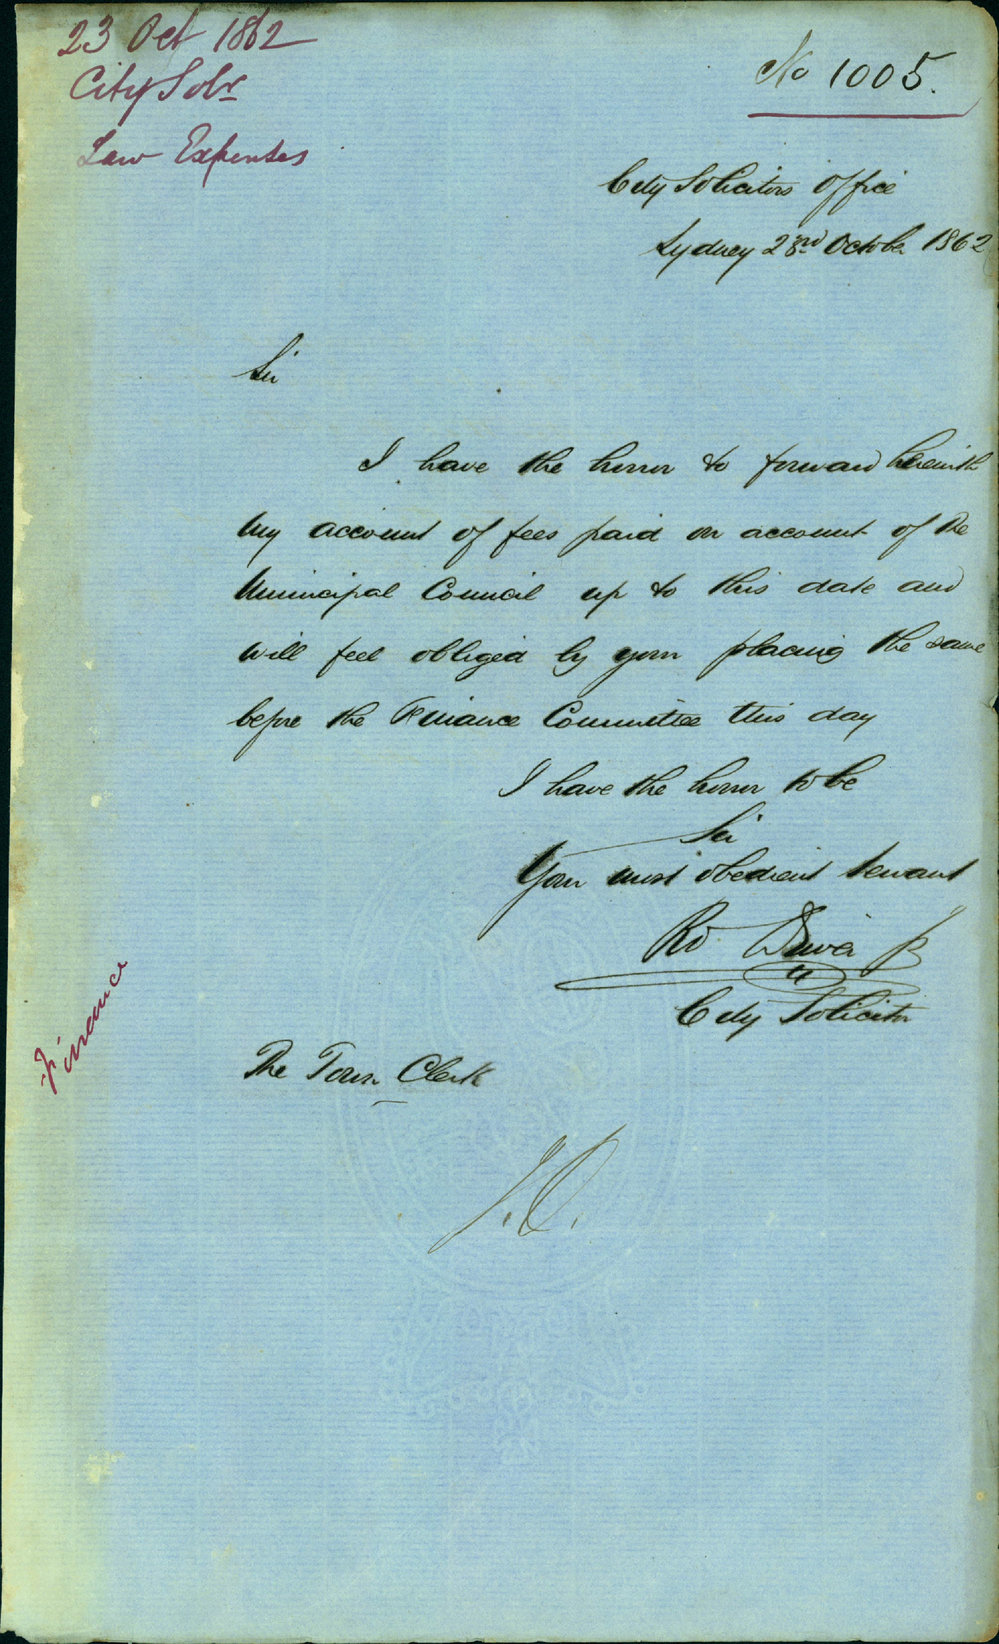 23 Oct 1862
City Solr
Law Expenses
No 1005.
City Solicitors Office
Sydney 23rd October 1862
Sir
I have the honor to forward herewith
my account of fees paid on account of the
Municipal Council up to this date and
will feel obliged by your placing the same
before the Finance Committee this day
I have the honor to be
Sir
Your most obedient servant
Rd Driver Jr
City Solicitor
Finance
The Town Clerk